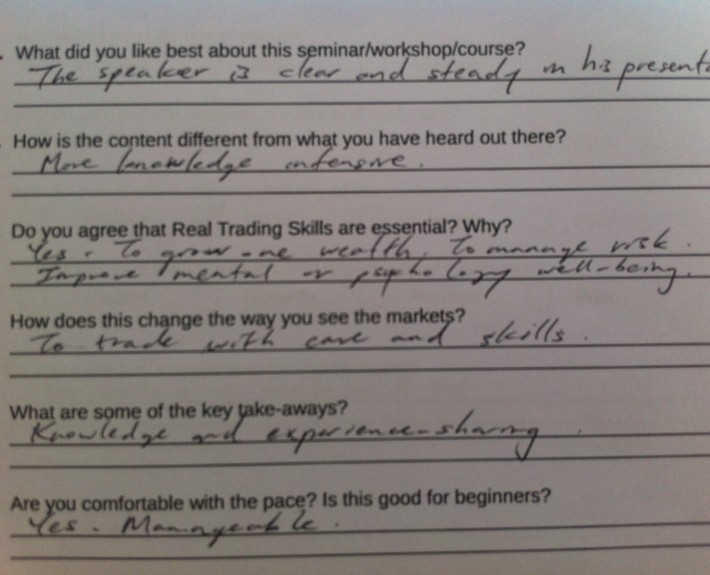 What did you like best about this seminar/workshop/course?
The speaker is clear and steady in his present
How is the content different from what you have heard out there?
More knowledge intensive.
Do you agree that Real Trading Skills are essential? Why?
Yes. To grow one wealth, To manage risk.
Improve mental or psychology well-being.
How does this change the way you see the markets?
To trade with care and skills.
What are some of the key take-aways?
Knowledge and experience-sharing.
Are you comfortable with the pace? Is this good for beginners?
Yes. Manageable.